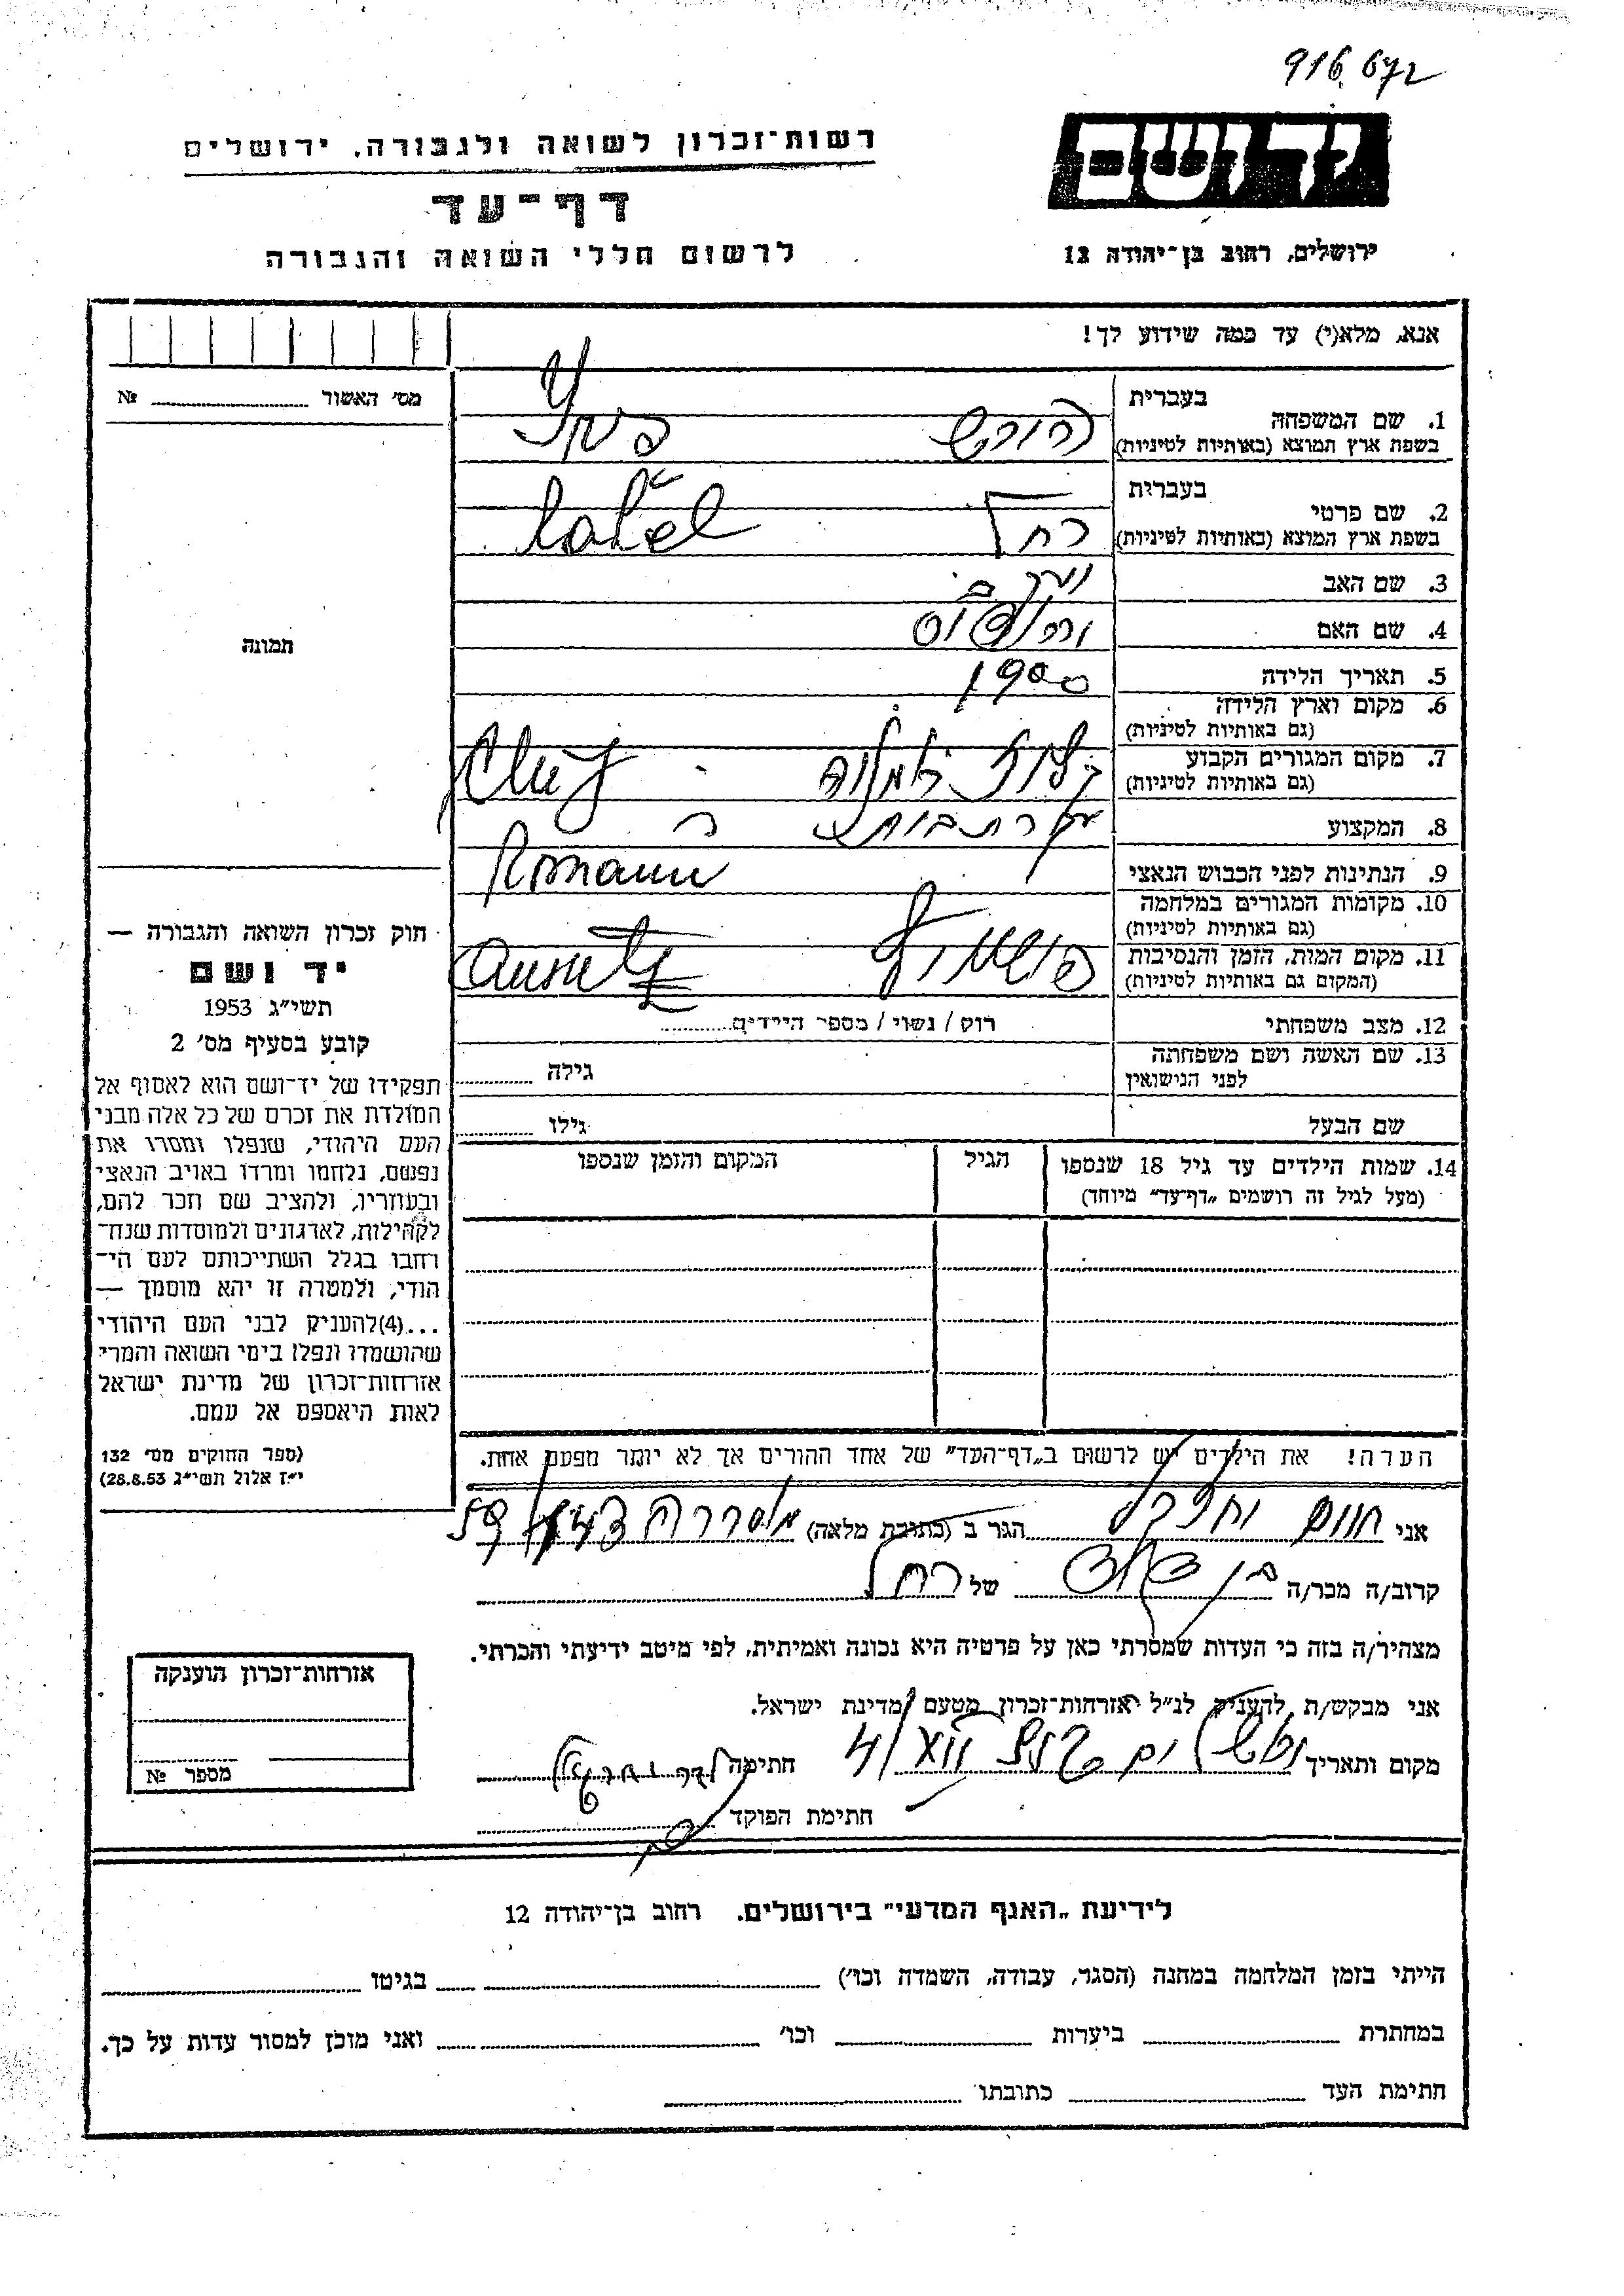 916.672
רשות־זכרון לשואה ולגבורה, ירושלים
דף־עד
לרשום חללי השואה והגבורה
יד ושם
ירושלים, רחוב בן־יהודה 12
אנא, מלא(י) עד כמה שידוע לך!
מס' האשור № 
תמונה
בעברית
1. שם המשפחה
בשפת ארץ המוצא (באותיות לטיניות)
בעברית
2. שם פרטי
רחל
בשפת ארץ המוצא (באותיות לטיניות)
3. שם האב
4. שם האם
5. תאריך הלידה 1900
6. מקום וארץ הלידה
(גם באותיות לטיניות)
7. מקום המגורים הקבוע
(גם באותיות לטיניות)
Cluj
8. המקצוע
עקרת בית
9. הנתינות לפני הכבוש הנאצי
10. מקומות המגורים במלחמה
(גם באותיות לטיניות)
11. מקום המות, הזמן והנסיבות
(המקום גם באותיות לטיניות)
12. מצב משפחתי
רוק / נשוי / מספר הילדים
13. שם האשה ושם משפחתה
לפני הנישואין
גילה
שם הבעל
גילו
14. שמות הילדים עד גיל 18 שנספו
(מעל לגיל זה רושמים „דף־עד" מיוחד)
הגיל
המקום והזמן שנספו
הערה! את הילדים יש לרשום ב„דף־העד" של אחד ההורים אך לא יותר מפעם אחת.
חוק זכרון השואה והגבורה —
יד ושם
תשי"ג 1953
קובע בסעיף מס' 2
תפקידו של יד־ושם הוא לאסוף אל
המולדת את זכרם של כל אלה מבני
העם היהודי, שנפלו ומסרו את
נפשם, נלחמו ומרדו באויב הנאצי
ובעוזריו, ולהציב שם וזכר להם,
לקהילות, לארגונים ולמוסדות שנח־
רחבו בגלל השתייכותם לעם הי־
הודי, ולמטרה זו יהא מוסמך —
...(4)להעניק לבני העם היהודי
שהושמדו ונפלו בימי השואה והמרי
אזרחות־זכרון של מדינת ישראל
לאות היאספם אל עמם.
(ספר החוקים מס' 132
י"ז אלול תשי"ג 28.8.53)
אני חיים הגר ב (כתובת מלאה)
קרוב/ה מכר/ה בן דוד של רחל
מצהיר/ה בזה כי העדות שמסרתי כאן על פרטיה היא נכונה ואמיתית, לפי מיטב ידיעתי והכרתי.
אני מבקש/ת להעניק לנ"ל אזרחות־זכרון מטעם מדינת ישראל.
מקום ותאריך חתימה
חתימת הפוקד
אזרחות־זכרון הוענקה
מספר №
לידיעת „האגף המדעי" בירושלים. רחוב בן־יהודה 12
הייתי בזמן המלחמה במחנה (הסגר, עבודה, השמדה וכו') בגיטו
במחתרת ביערות וכו' ואני מוכן למסור עדות על כך.
חתימת העד כתובתו